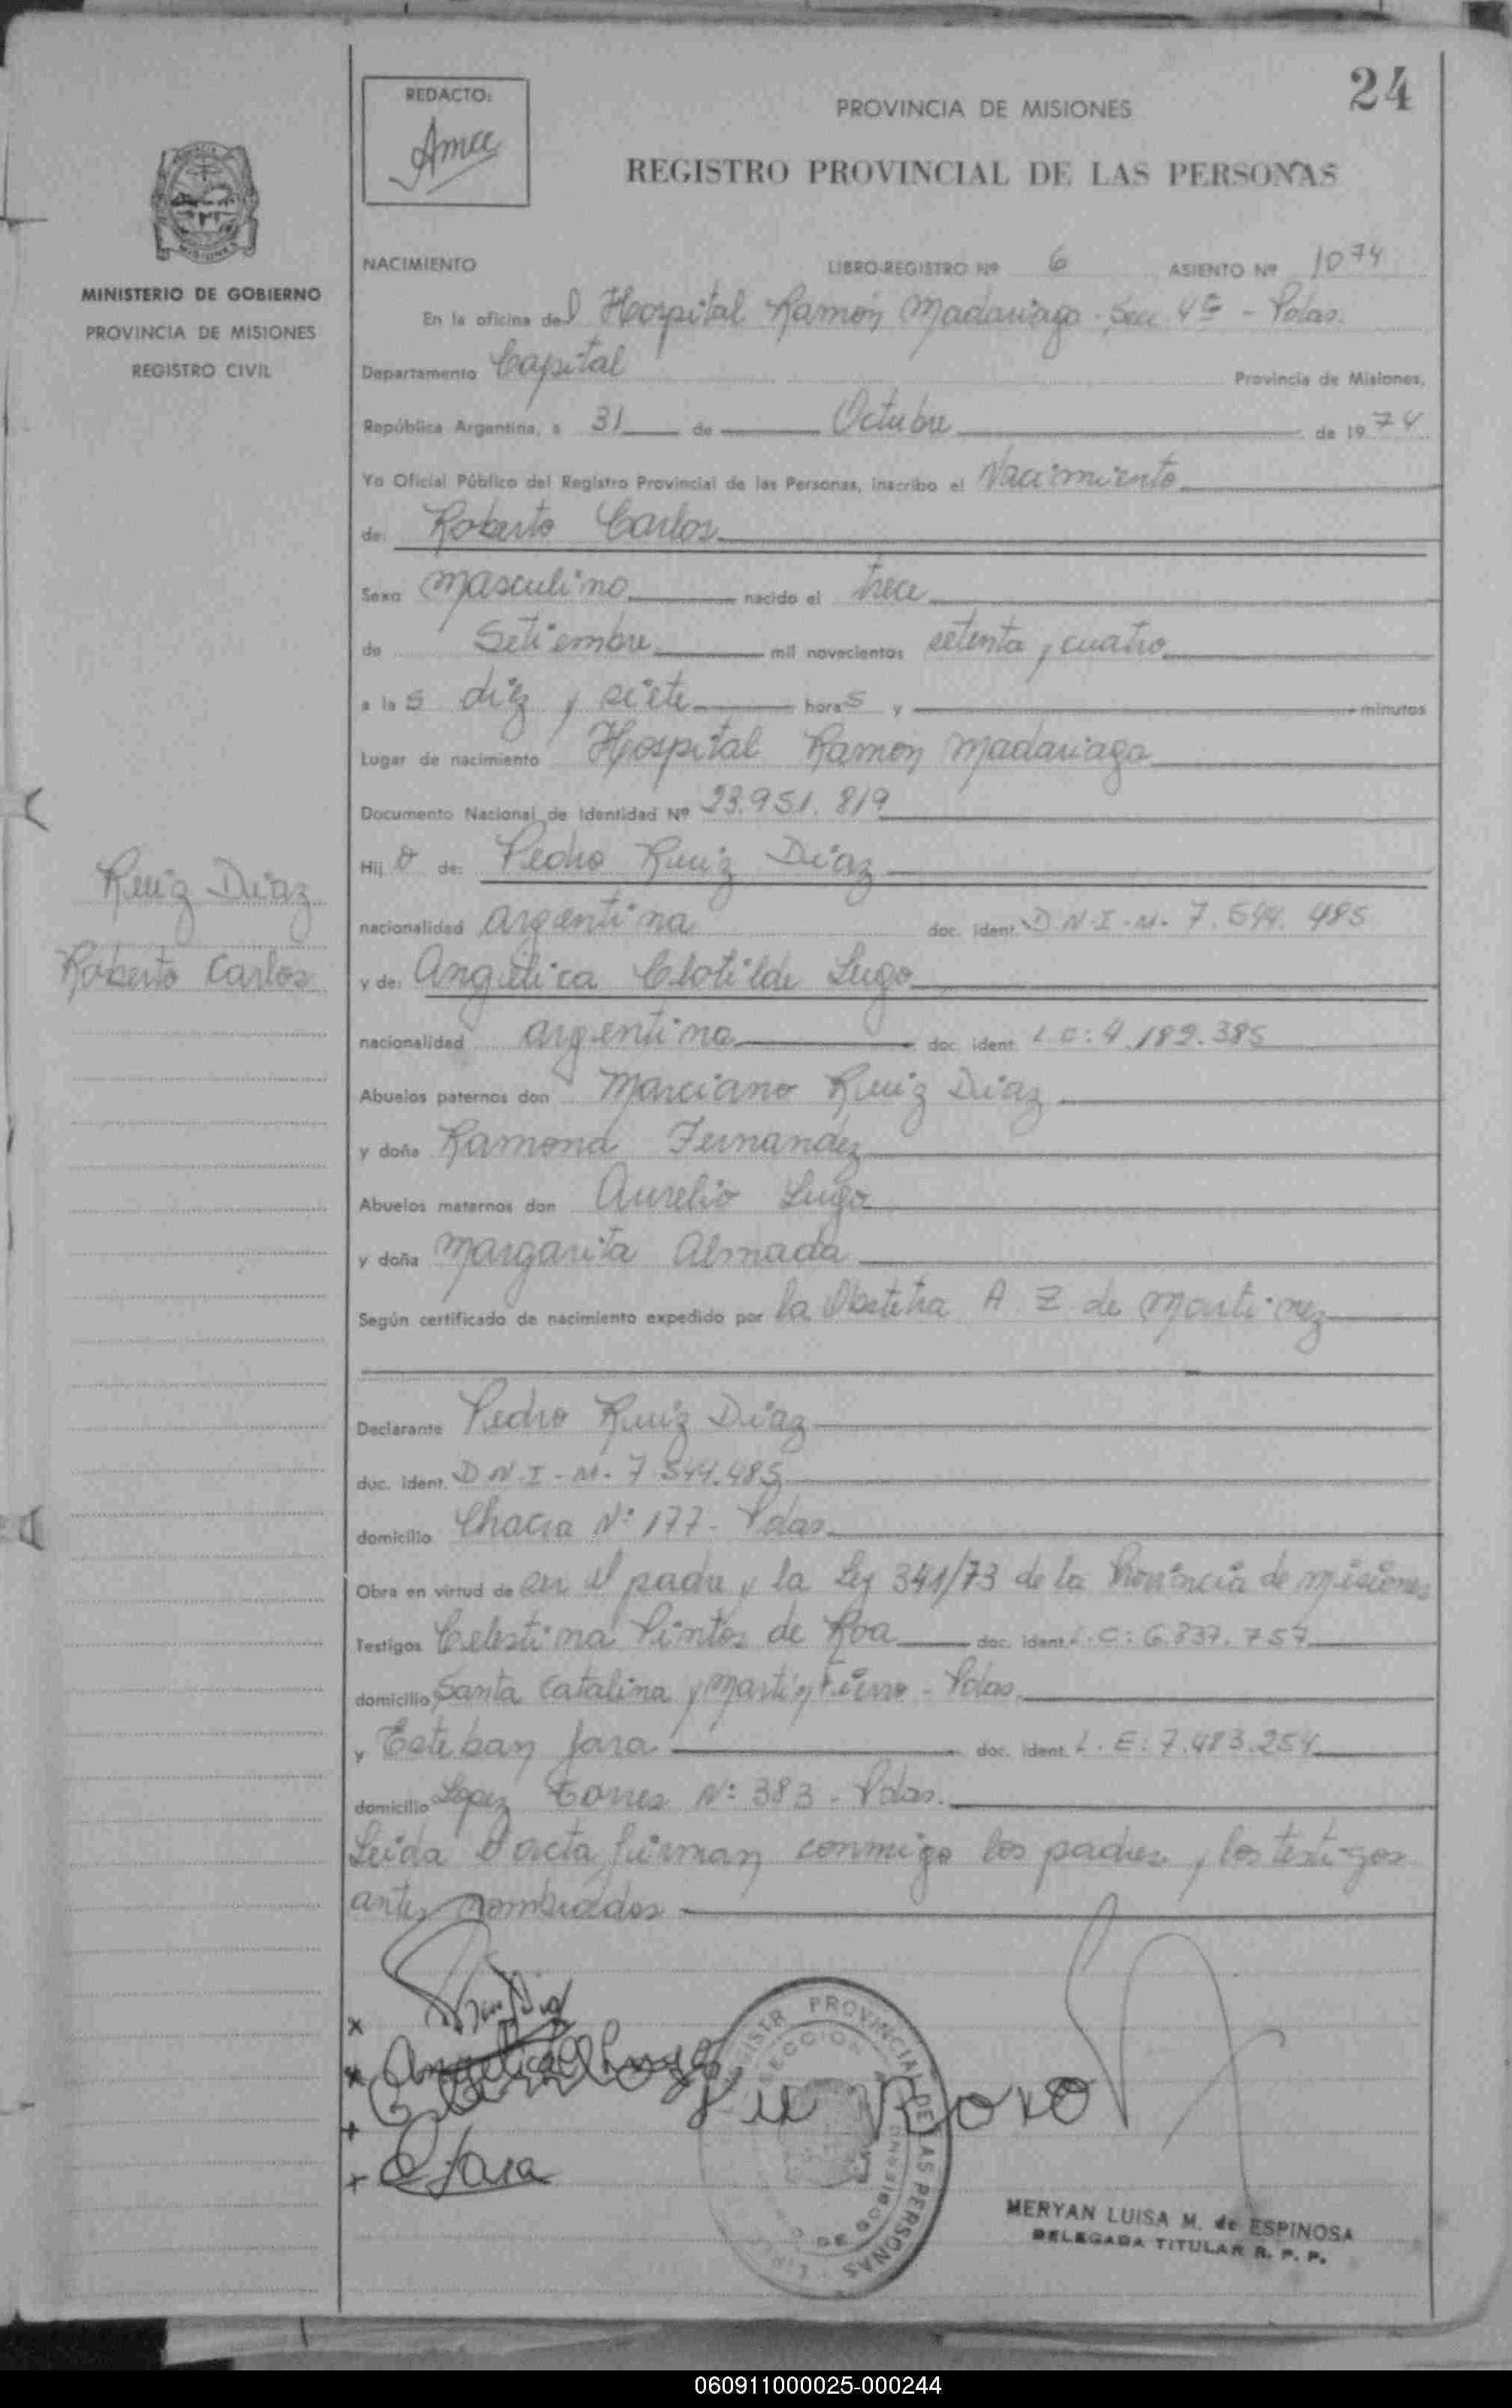 24
REDACTO:
PROVINCIA DE MISIONES
REGISTRO PROVINCIAL DE LAS PERSONAS
MINISTERIO DE GOBIERNO
PROVINCIA DE MISIONES
REGISTRO CIVIL
NACIMIENTO LIBRO-REGISTRO Nº 6 ASIENTO Nº 1074
En la oficina del Hospital Ramón Madariaga - Secc. 4ª - Pdas.
Departamento Capital Provincia de Misiones,
República Argentina, a 31 de Octubre de 1974
Yo Oficial Público del Registro Provincial de las Personas, inscribo el Nacimiento
de: Roberto Carlos
Sexo masculino nacido el trece
de Setiembre mil novecientos setenta y cuatro
a las diez y siete horas y minutos
Lugar de nacimiento Hospital Ramon Madariaga
Documento Nacional de Identidad Nº 23.951.819
Hijo de: Pedro Ruiz Diaz
nacionalidad argentina doc. ident. D.N.I-M- 7.544.485
y de: Angelica Clotilde Lugo
nacionalidad argentina doc. ident. L.C: 4.182.385
Abuelos paternos don Marciano Ruiz Diaz
y doña Ramona Fernandez
Abuelos maternos don Aurelio Lugo
y doña Margarita Almada
Según certificado de nacimiento expedido por la Obstetra A. Z. de Martinez
Declarante Pedro Ruiz Diaz
doc. ident. D.N.I-M- 7.544.485
domicilio Chacra Nº 177- Pdas.
Obra en virtud de ser el padre y la Ley 341/73 de la Provincia de Misiones
Testigos Celestina Pintos de Roa doc. ident. L.C: 6.837.757
domicilio Santa Catalina y Martin Fierro - Pdas.
y Esteban Jara doc. ident. L.E: 7.483.254
domicilio Lopez Torres Nº 383 - Pdas.
Leida el acta firman conmigo los padres y los testigos
antes nombrados
Ruiz Diaz
Roberto Carlos
REGISTRO PROVINCIAL DE LAS PERSONAS
SECCION
MERYAN LUISA M. de ESPINOSA
DELEGADA TITULAR R. P. P.
060911000025-000244